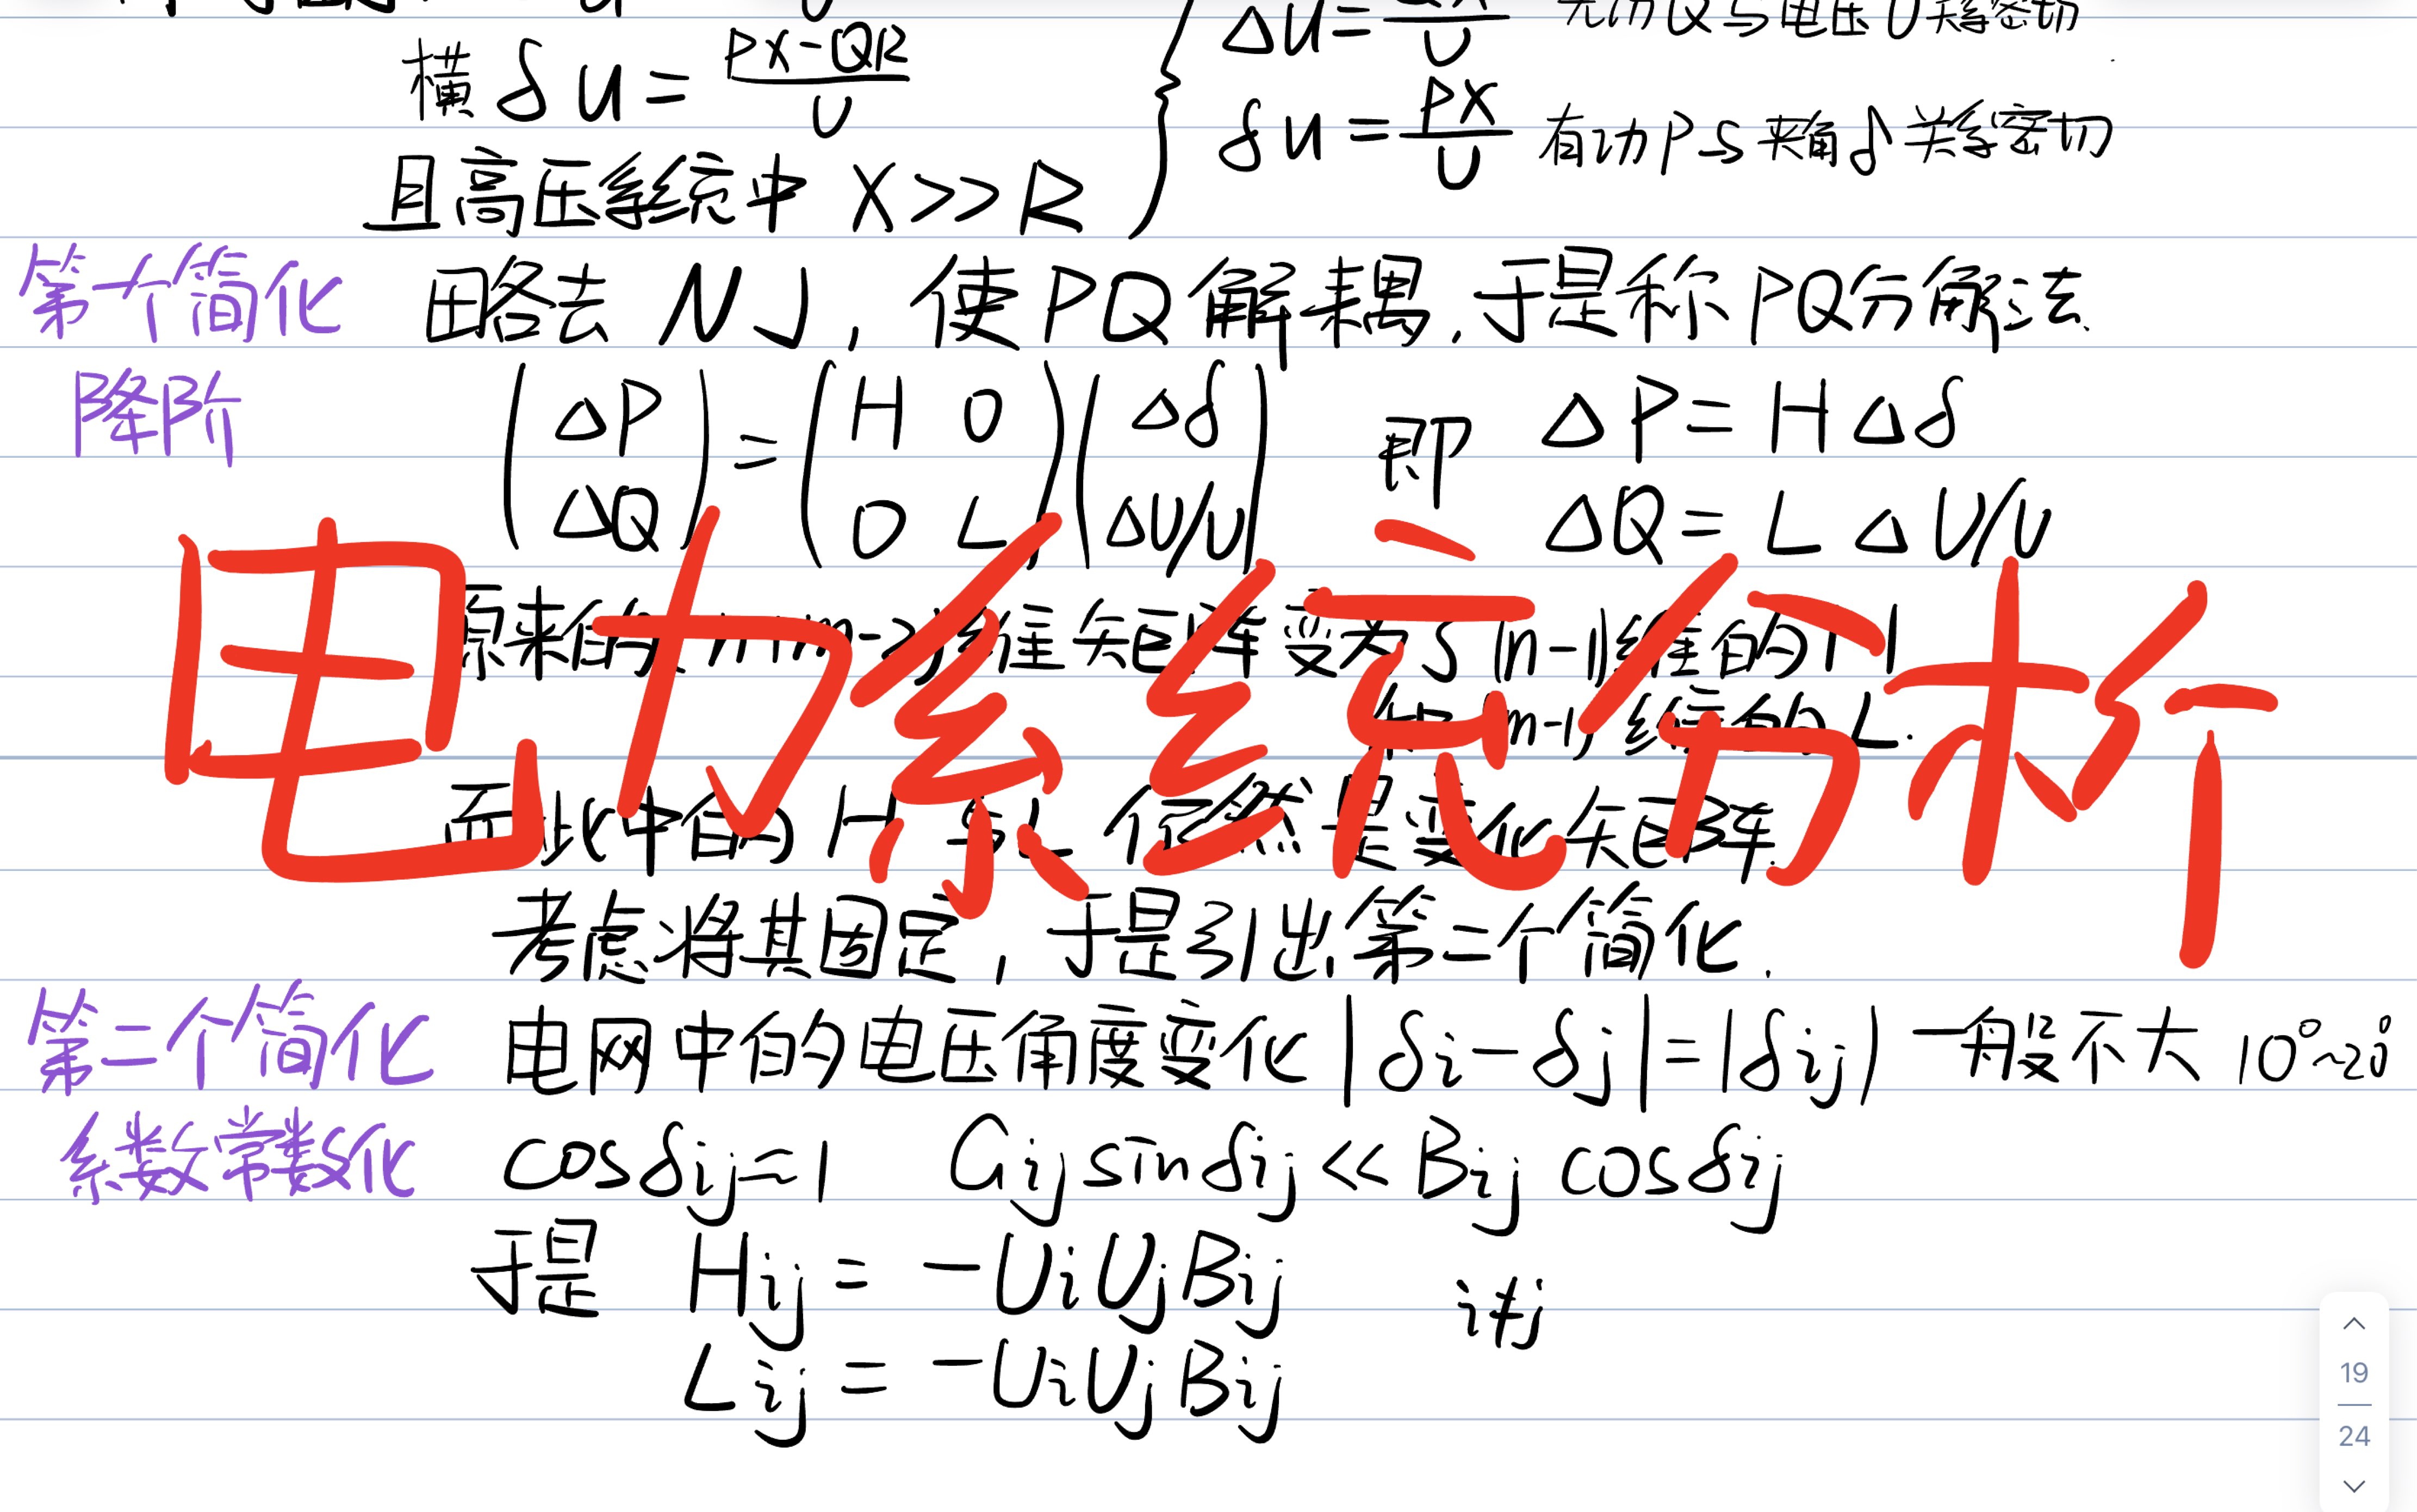 横 δu = (PX-QR)/U
Δu = QX/U 无功Q与电压U关系密切
δu = PX/U 有功P与夹角δ关系密切
且高压系统中 X>>R
第一个简化 略去 N J, 使PQ解耦.于是称PQ分解法.
降阶
(ΔP ΔQ) = (H 0 0 L)(Δδ ΔU/U) 即 ΔP = HΔδ
ΔQ = L ΔU/U
电力系统分析
原来的 维矩阵变为了(n-1)维的H
和(m-1)维的L.
而此中的 H 与L 仍然是变化矩阵.
考虑将其固定, 于是引出第二个简化.
第二个简化 电网中的电压角度变化 |δi-δj|=|δij| 一般不大 10°~20°
系数常数化 cosδij≈1 Gij sinδij << Bij cosδij
于是 Hij = -UiUjBij i≠j
Lij = -UiUjBij
19
24